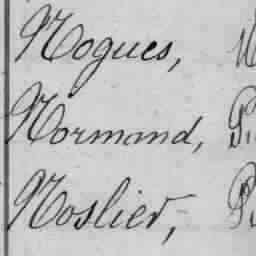 Nogues,
Normand,
Noslier,